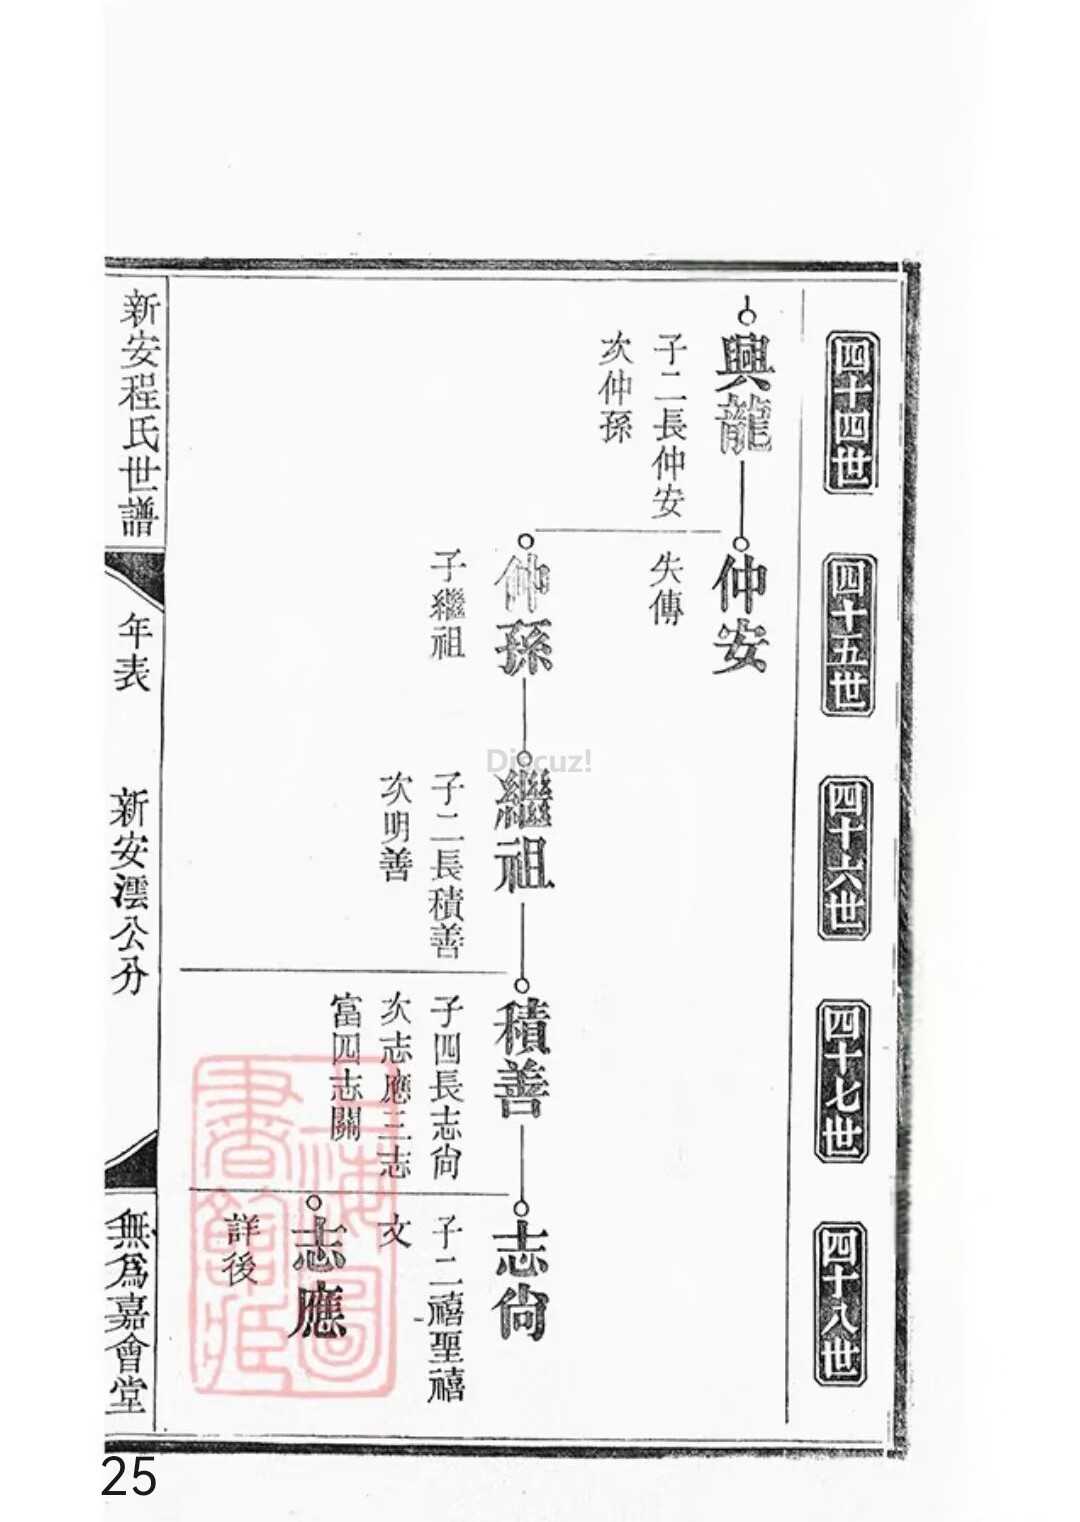 四十四世
四十五世
四十六世
四十七世
四十八世
興龍
子二長仲安
次仲孫
仲安
失傳
仲孫
子繼祖
繼祖
子二長積善
次明善
積善
子四長志尙
次志應三志
富四志關
志尙
子二禧聖禧
文
志應
詳後
新安程氏世譜
年表
新安澐公分
無爲嘉會堂
上海圖
書館藏
Discuz!
25